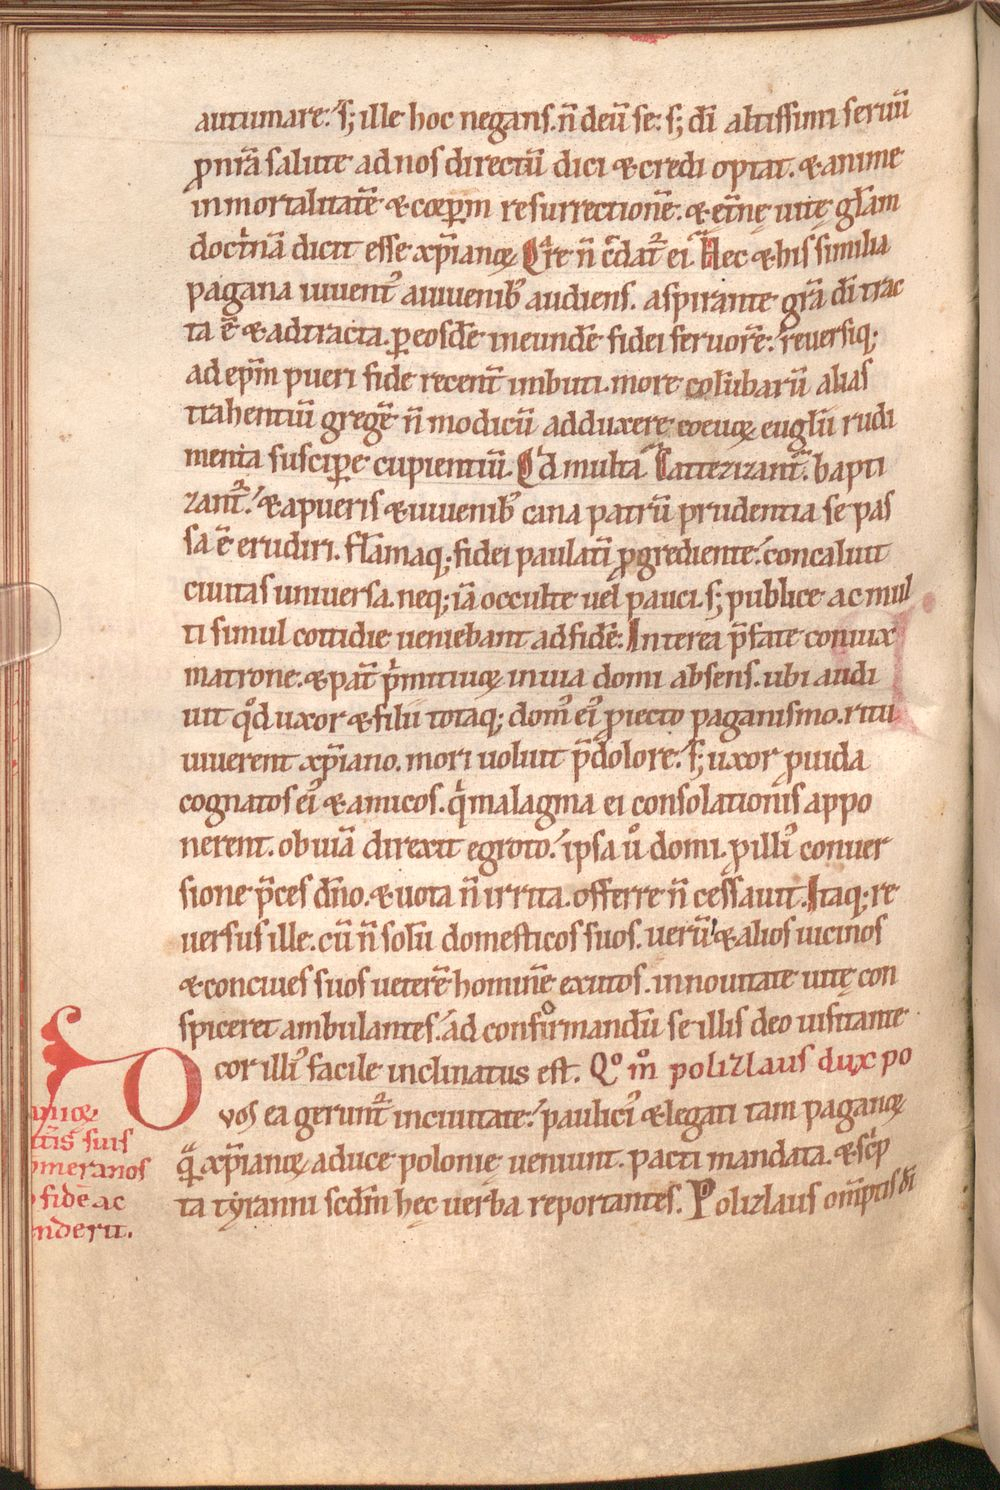 autumare. s; ille hoc negans. n̄ deū se: s; dī altissimi seruū
ꝓ nr̄a salute ad nos directū dici & credi optat. & anime
inmortalitatē & corꝑm resurrectionē. & et̄nę uitę gl̄am
doct̍nā dicit esse xp̄ianoꝝ Qͣre n̄ c̄dat᷑ ei. Hec & his similia
pagana iuuent᷒ a iuuenib᷒ audiens. aspirante gr̄a dī trac
ta ē & adtracta. ꝑ eosdē ineundē fidei feruorē. reuersiq;
ad ep̄m pueri fide recent̄ imbuti. more colūbarū alias
trahentiū gregē n̄ modicū adduxere coeuoꝝ eugl̄ii rudi
menta suscipe cupientiū. Qͥd multa Cattezizant᷑. bapti
zant᷑. & a pueris & iuuenib᷒ cana patrū prudentia se pas
sa ē erudiri. flāmaq; fidei paulatī ꝓgrediente. concaluit
ciuitas uniuersa. neq; iā occulte uel pauci. s; publice ac mul
ti simul cottidie ueniebant ad fidē. Interea p̄fate coniux
matrone. & pat̄ p̍mitiuoꝝ in uia domi absens. ubi audi
uit qͦd uxor & filii totaq; dom᷒ ei᷒ ꝓiecto paganismo. ritu
uiuerent xp̄iano. mori uoluit p̄ dolore. s; uxor ꝓuida
cognatos ei᷒ & amicos. qͥ malagma ei consolationis appo
nerent. obuiā direxit egroto. ipsa ů domi. ꝓ illi᷒ conuer
sione p̄ces dn̄o. & uota n̄ irrita. offerre n̄ cessauit. Itaq; re
uersus ille. cū n̄ solū domesticos suos. uerū & alios uicinos
& conciues suos ueterē hominē exutos. in nouitate uitę con
spiceret ambulantes. ad confirmandū se illis deo uisitante
cor illi᷒ facile inclinatus est. Qͦ mͦ polizlaus dux po
Dvos ea gerunt᷑ in ciuitate. paulici᷒ & legati tam paganoꝝ
qͣꝫ xp̄ianoꝝ a duce polonię ueniunt. pacti mandata. & sc̍p
ta tẏranni scdm̄ hęc uerba reportantes. Polizlaus om̄ptis dī
suis
meranos
fidē ac
nderit.